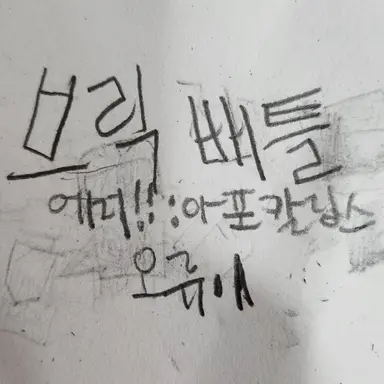 브릭 배틀
에러!!:아포칼립스
오류